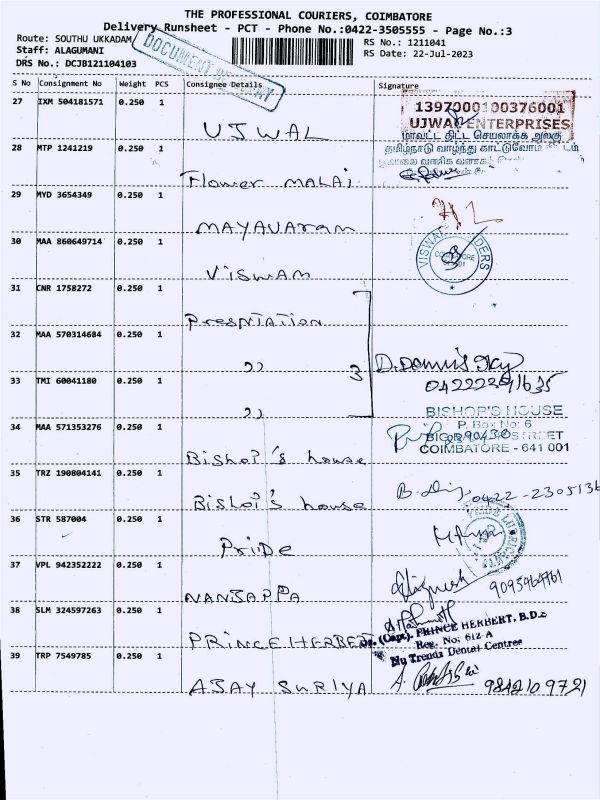 THE PROFESSIONAL COURIERS, COIMBATORE
Delivery Runsheet - PCT - Phone No.:0422-3505555 - Page No.:3
Route: SOUTHU UKKADAM
RS No.: 1211041
Staff: ALAGUMANI
RS Date: 22-Jul-2023
DRS No.: DCJB121104103
DOCUMENT
S No Consignment No Weight PCS Consignee Details Signature
27 IXM 504181571 0.250 1 UJWAL
1397000100376001
UJWAL ENTERPRISES
மாவட்ட திட்ட செயலாக்க அலகு
28 MTP 1241219 0.250 1 Flower MALAI
தமிழ்நாடு வாழ்ந்து காட்டுவோம்
29 MYD 3654349 0.250 1 MAYAVARAM
30 MAA 860649714 0.250 1 VISWAM
31 CNR 1758272 0.250 1 PresNTATION
32 MAA 570314684 0.250 1 ,, 3
33 TMI 60041180 0.250 1 ,,
BISHOP'S HOUSE
P. Box No: 6
STREET
COIMBATORE - 641 001
34 MAA 571353276 0.250 1 Bishop's house
35 TRZ 190804141 0.250 1 Bishop's house
0422-2305136
36 STR 587004 0.250 1 PriDe
PRIDE LUBRICANTS
37 VPL 942352222 0.250 1 NANJAPPA
38 SLM 324597263 0.250 1 PRINCE HERBERT
Dr. (Capt). PRINCE HERBERT, B.D.S
Reg. No: 612-A
Nu Trendz Dental Centre
39 TRP 7549785 0.250 1 AJAY SURIYA
9842109721